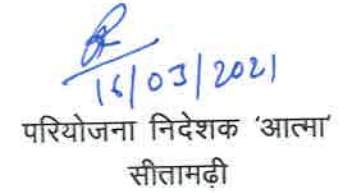 16/03/2021
परियोजना निदेशक 'आत्मा'
सीतामढ़ी